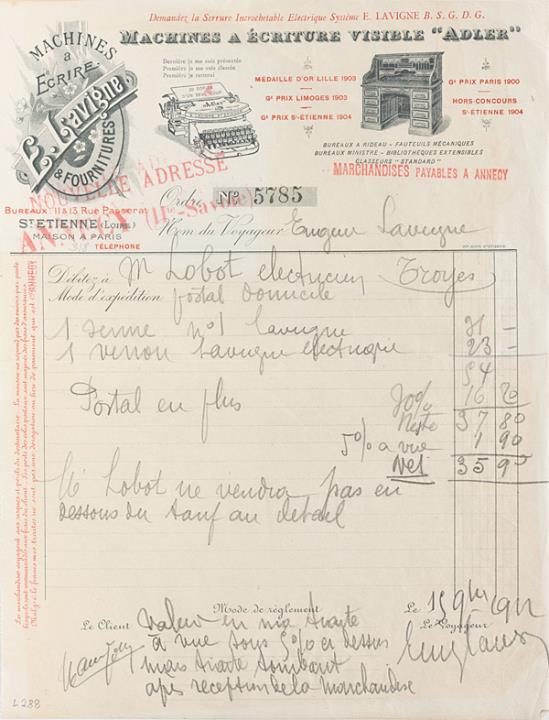 Demandez la Serrure Incrochetable Electrique Système E. LAVIGNE B. S. G. D. G.
MACHINES A ÉCRITURE VISIBLE "ADLER"
MACHINES
à
ECRIRE
E. Lavigne
& FOURNITURES
Dernière je me suis présentée
Première je me suis classée
Première je resterai
MÉDAILLE D'OR LILLE 1903
Gd PRIX LIMOGES 1903
Gd PRIX St-ÉTIENNE 1904
Gd PRIX PARIS 1900
HORS-CONCOURS
St-ÉTIENNE 1904
BUREAUX A RIDEAU - FAUTEUILS MÉCANIQUES
BUREAUX MINISTRE - BIBLIOTHÈQUES EXTENSIBLES
CLASSEURS "STANDARD"
MARCHANDISES PAYABLES A ANNECY
NOUVELLE ADRESSE
ANNECY (Hte-Savoie)
Ordre No 5785
BUREAUX: 11 & 13 Rue Passerat
St ETIENNE (LOIRE)
MAISON A PARIS
TÉLÉPHONE
Nom du Voyageur Eugène Lavigne
Débitez à M Lobot electricien Troyes
Mode d'expédition postal domicile
1 serrure no 1 Lavigne 31 -
1 verrou Lavigne electrique 23 -
54
Postal en plus 30% 16 20
Reste 37 80
5% a vue 1 90
Net 35 90
M Lobot ne vendra pas en
dessous du tarif au détail
Mode de règlement
Le 15 9bre 1912
Le Client
Le Voyageur
Valeur en ma traite
à vue sous 5% ci dessus
mais traite tombant
apes reception de la marchandise
L288